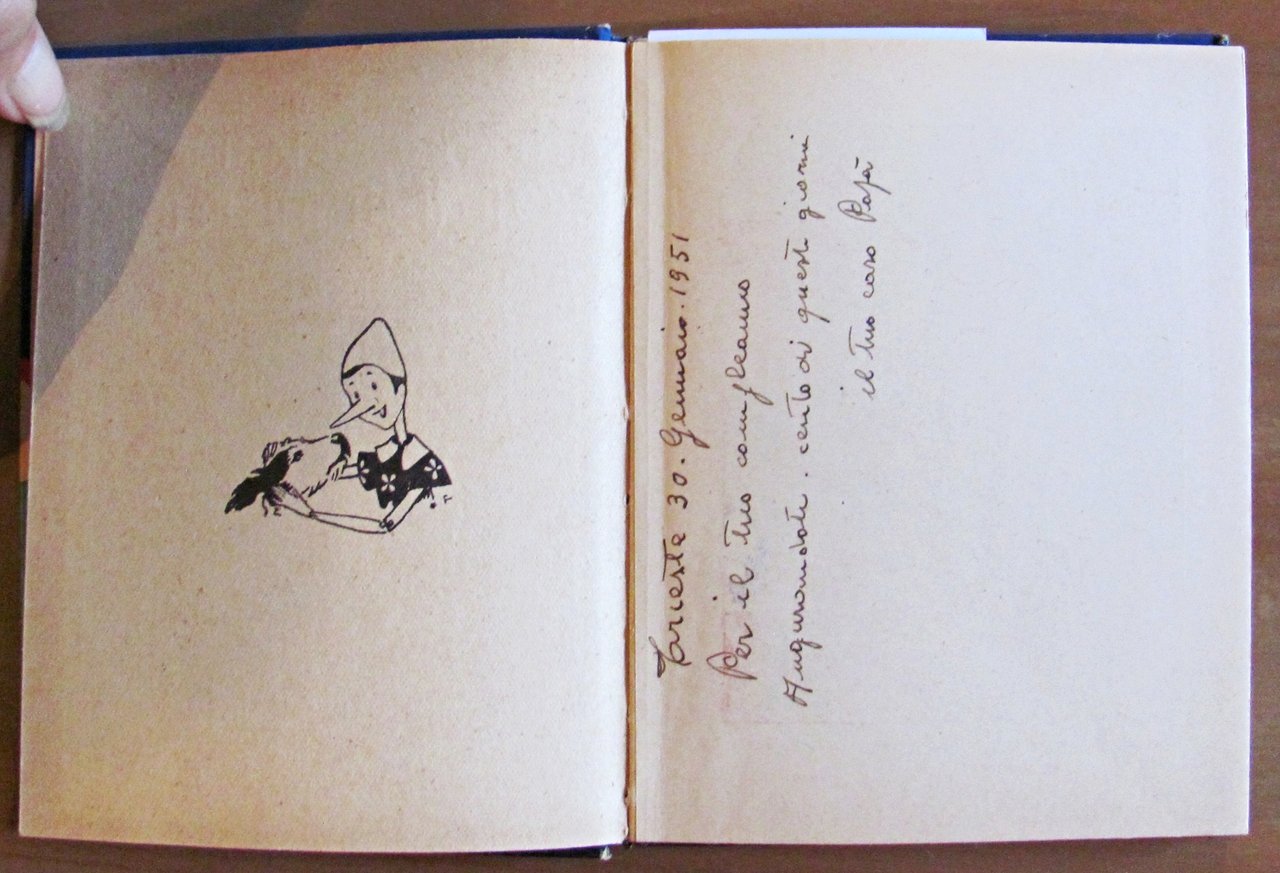 Trieste 30. Gennaio. 1951
Per il tuo compleanno
Augurandoti. cento di questi giorni
il tuo caro Papà